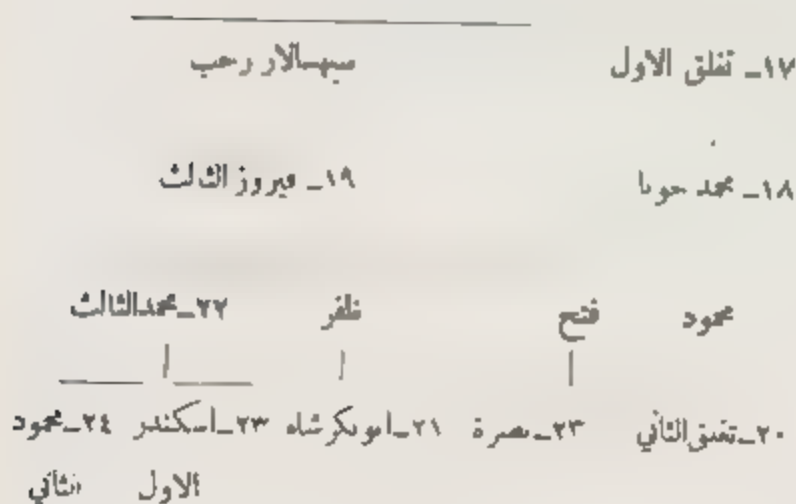 ١٧ـ تغلق الاول سپهسالار رجب
١٨ـ محمد جونا ١٩ـ فيروز الثالث
محمود فتح ظفر ٢٢ـ محمدالثالث
٢٠ـ تغلق الثاني ٢٣ـ نصرة ٢١ـ ابو بكر شاه ٢٣ـ اسكندر ٢٤ـ محمود
الاول الثاني